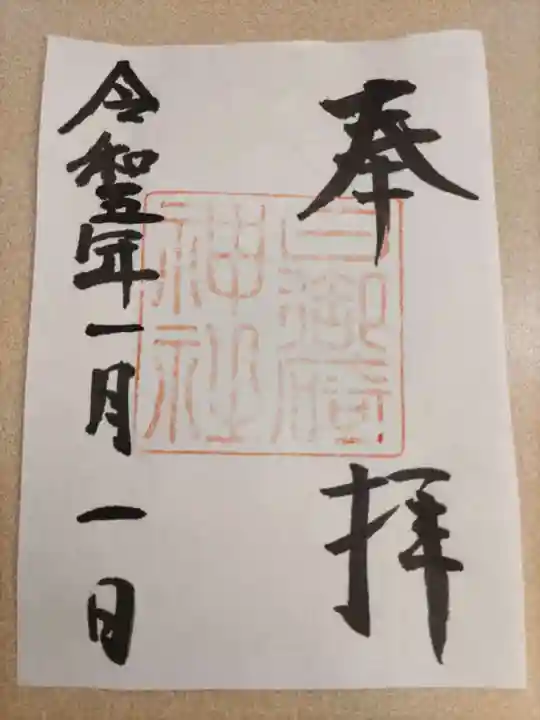 奉拝
神社
令和五年一月一日